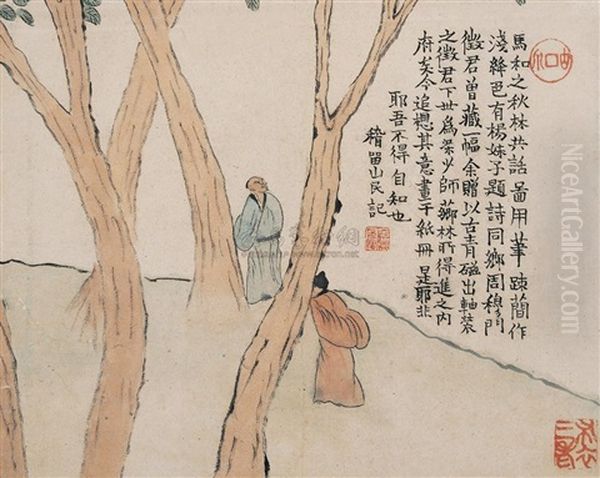 馬和之秋林共話啚用筆踈簡作
淺絳色有楊妹子題詩同鄉周穆門
徵君曽藏一幅余贈以古青磁出軸裝
之徵君下世為梁少師薌林所得進之内
府矣今追想其意畫于紙冊是耶非
耶吾不得自知也
稽留山民記
NiceArtGallery.com